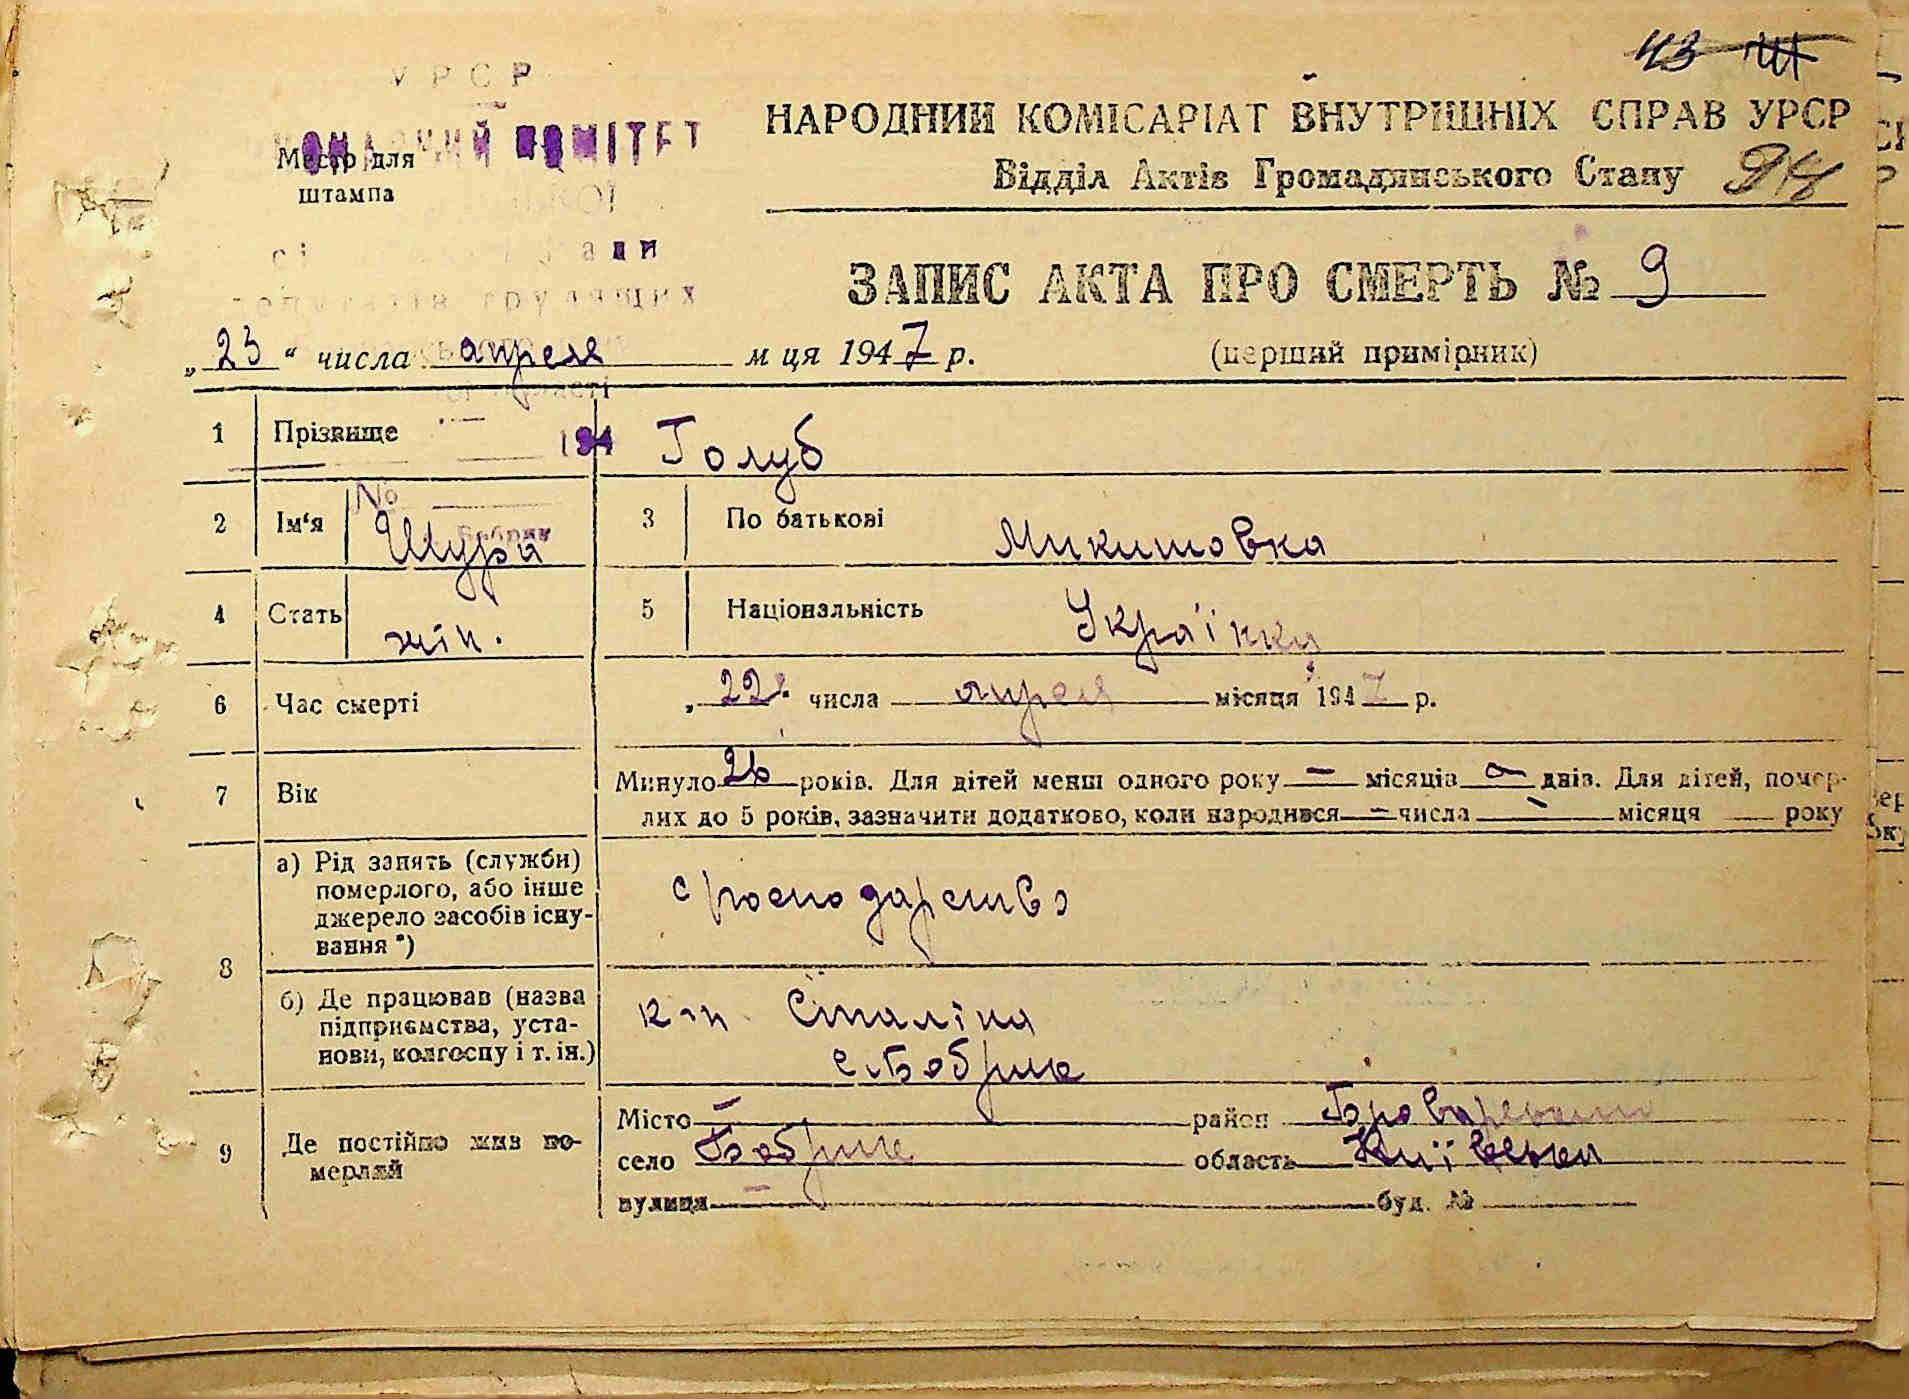 УРСР
КОМІТЕТ
Место для
штампа
43
НАРОДНИЙ КОМІСАРІАТ ВНУТРІШНІХ СПРАВ УРСР
Відділ Актів Громадянського Стану
ЗАПИС АКТА ПРО СМЕРТЬ № 9
„23“ числа апреля м ця 1947 р.
(перший примірник)
1 Прізвище Голуб
194
№
2 Ім‘я Шура 3 По батькові Микитовка
4 Стать жін. 5 Національність Українка
6 Час смерті „22 числа апреля місяця 1947 р.
7 Вік Минуло 26 років. Для дітей менш одного року — місяців — днів. Для дітей, помер-
лих до 5 років, зазначити додатково, коли народився — числа — місяця року
8 а) Рід занять (служби)
померлого, або інше
джерело засобів існу-
вання *)
с господарство
б) Де працював (назва
підприємства, уста-
нови, колгоспу і т. ін.)
к-п Сталіна
с. Бобрик
9 Де постійно жив по-
мерлий
Місто — район Броварський
село Бобрик область Київська
вулиця — буд. №